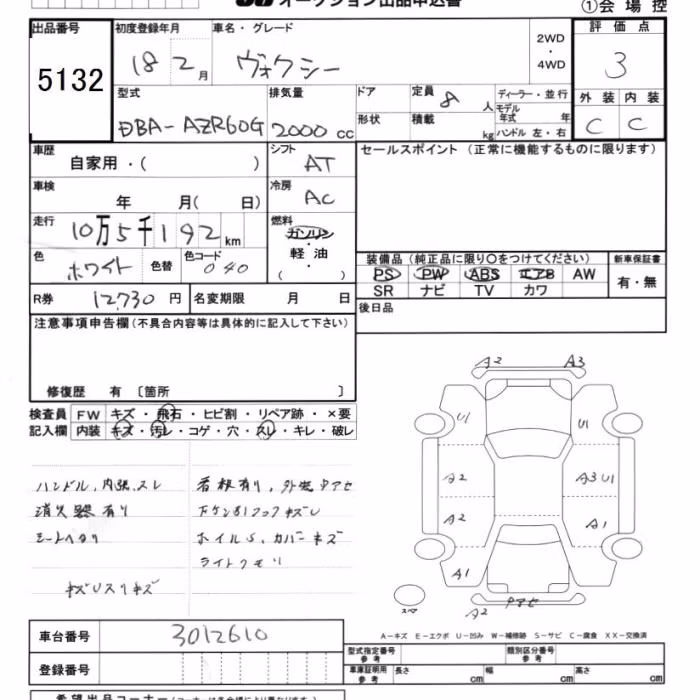 オークション出品申込書
①会場控
出品番号 初度登録年月 車名・グレード 評価点
5132 18 2月 ヴォクシー 2WD ・ 4WD 3
型式 排気量 ドア 定員 8 人 ディーラー・並行 外装 内装
DBA-AZR60G 2000 cc 形状 積載 kg モデル年式 年 C C
ハンドル 左・右
車歴 自家用・( ) シフト AT セールスポイント (正常に機能するものに限ります)
車検 年 月( 日) 冷房 AC
走行 10万5千192 km 燃料 ガソリン ・ 軽油 ( )
色 ホワイト 色替 色コード 040
装備品 (純正品に限り○をつけてください) 新車保証書
PS PW ABS エアB AW 有・無
SR ナビ TV カワ
R券 12,730 円 名変期限 月 日 後日品
注意事項申告欄(不具合内容等は具体的に記入して下さい)
修復歴 有 〔箇所 〕
検査員 FW キズ・飛石・ヒビ割・リペア跡・×要
記入欄 内装 キズ・汚レ・コゲ・穴・スレ・キレ・破レ
ハンドル、内張、スレ
消火器有り
シートヘタリ
キズUスリキズ
看板有り、外装
キズU
ホイルS、カバーキズ
ライトクモリ
A2 A3
U1 U1
A2 A3 U1
A2 A1
A1
スペア A2
A-キズ E-エクボ U-凹み W-補修跡 S-サビ C-腐食 XX-交換済
車台番号 3012610
登録番号
型式指定番号 参考 類別区分番号 参考
車庫証明用 参考 長さ cm 幅 cm 高さ cm
希望出品コーナー